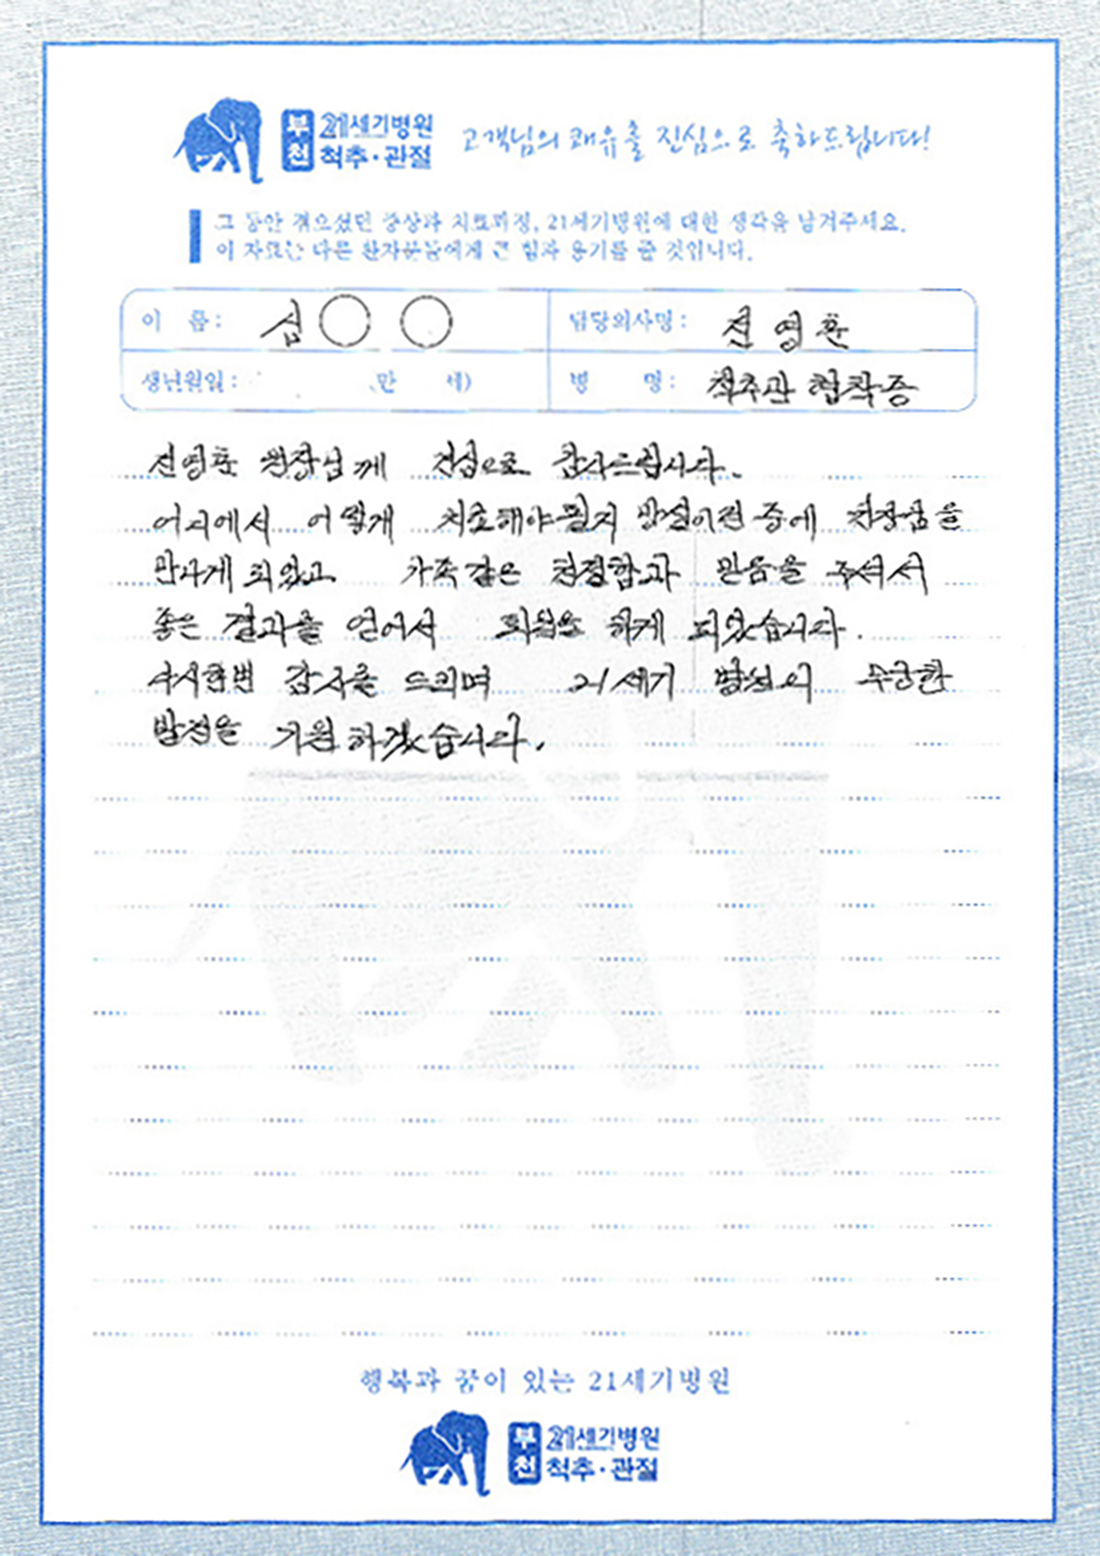 부천 21세기병원 척추·관절
고객님의 쾌유를 진심으로 축하드립니다!
그 동안 겪으셨던 증상과 치료과정, 21세기병원에 대한 생각을 남겨주세요.
이 자료는 다른 환자분들에게 큰 힘과 용기를 줄 것입니다.
이 름: 심○○ 담당의사명: 전영훈
생년월일: (만 세) 병 명: 척추관 협착증
전영훈 원장님께 진심으로 감사드립니다.
어디에서 어떻게 치료해야 될지 망설이던 중에 원장님을
만나게 되었고 가족같은 친절함과 믿음을 주셔서
좋은 결과를 얻어서 퇴원을 하게 되었습니다.
다시한번 감사를 드리며 21세기 병원의 무궁한
발전을 기원하겠습니다.
행복과 꿈이 있는 21세기병원
부천 21세기병원 척추·관절